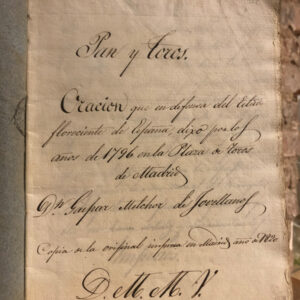 Pan y Toros.
Oracion que en defensa del Estado
floreciente de España, dixo por los
años de 1796 en la Plaza de Toros
de Madrid
Dn. Gaspar Melchor de Jovellanos
Copia de la original impresa en Madrid año de 1820
D. M. M. V.